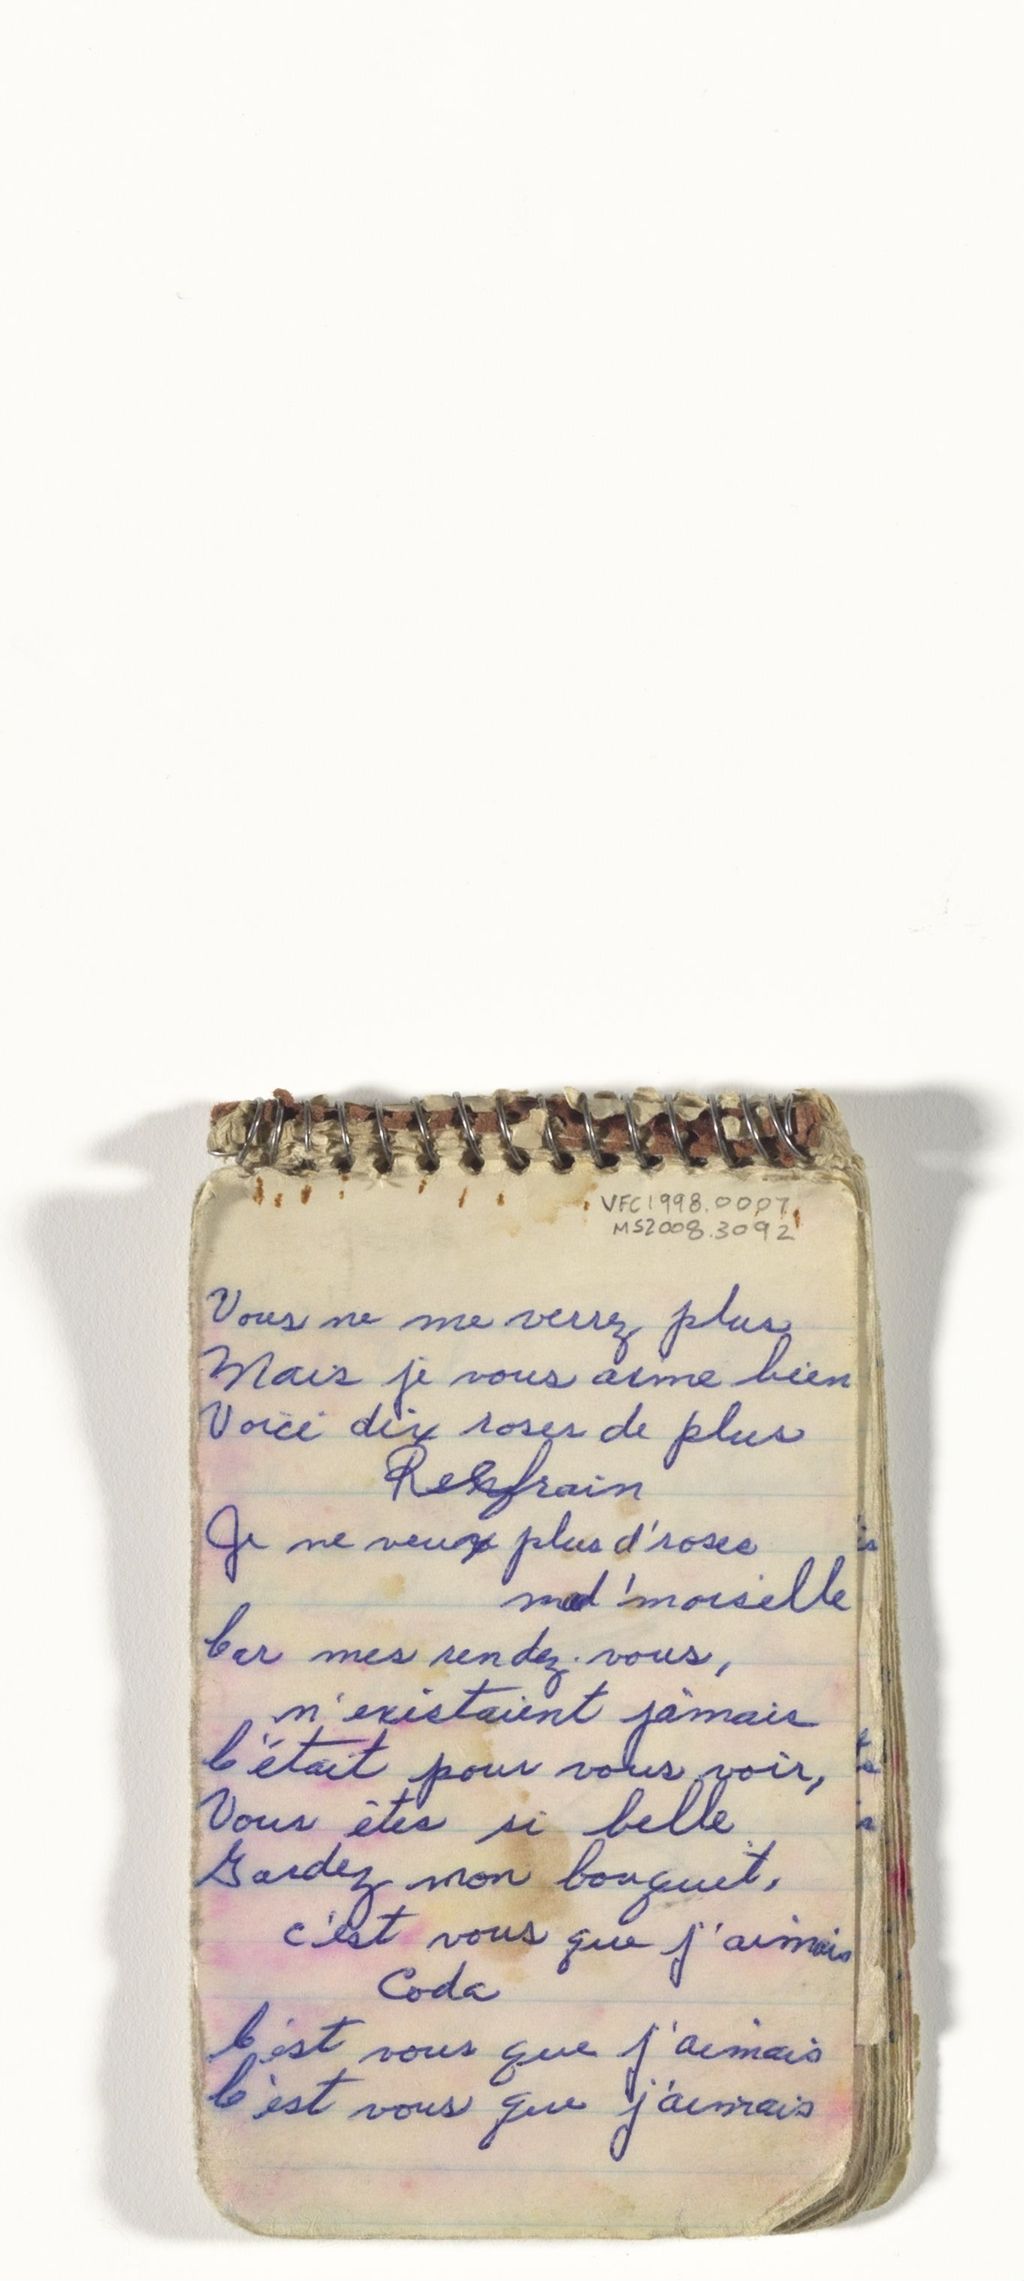 VFC1998.0007.
MS2008.3092
Vous ne me verrez plus
Mais je vous aime bien
Voici dix roses de plus
Refrain
Je ne veux plus d'roses
mad'moiselle
Car mes rendez-vous,
n'existaient jamais
C'était pour vous voir,
Vous êtes si belle
Gardez mon bouquet,
c'est vous que j'aimais
Coda
C'est vous que j'aimais
C'est vous que j'aimais